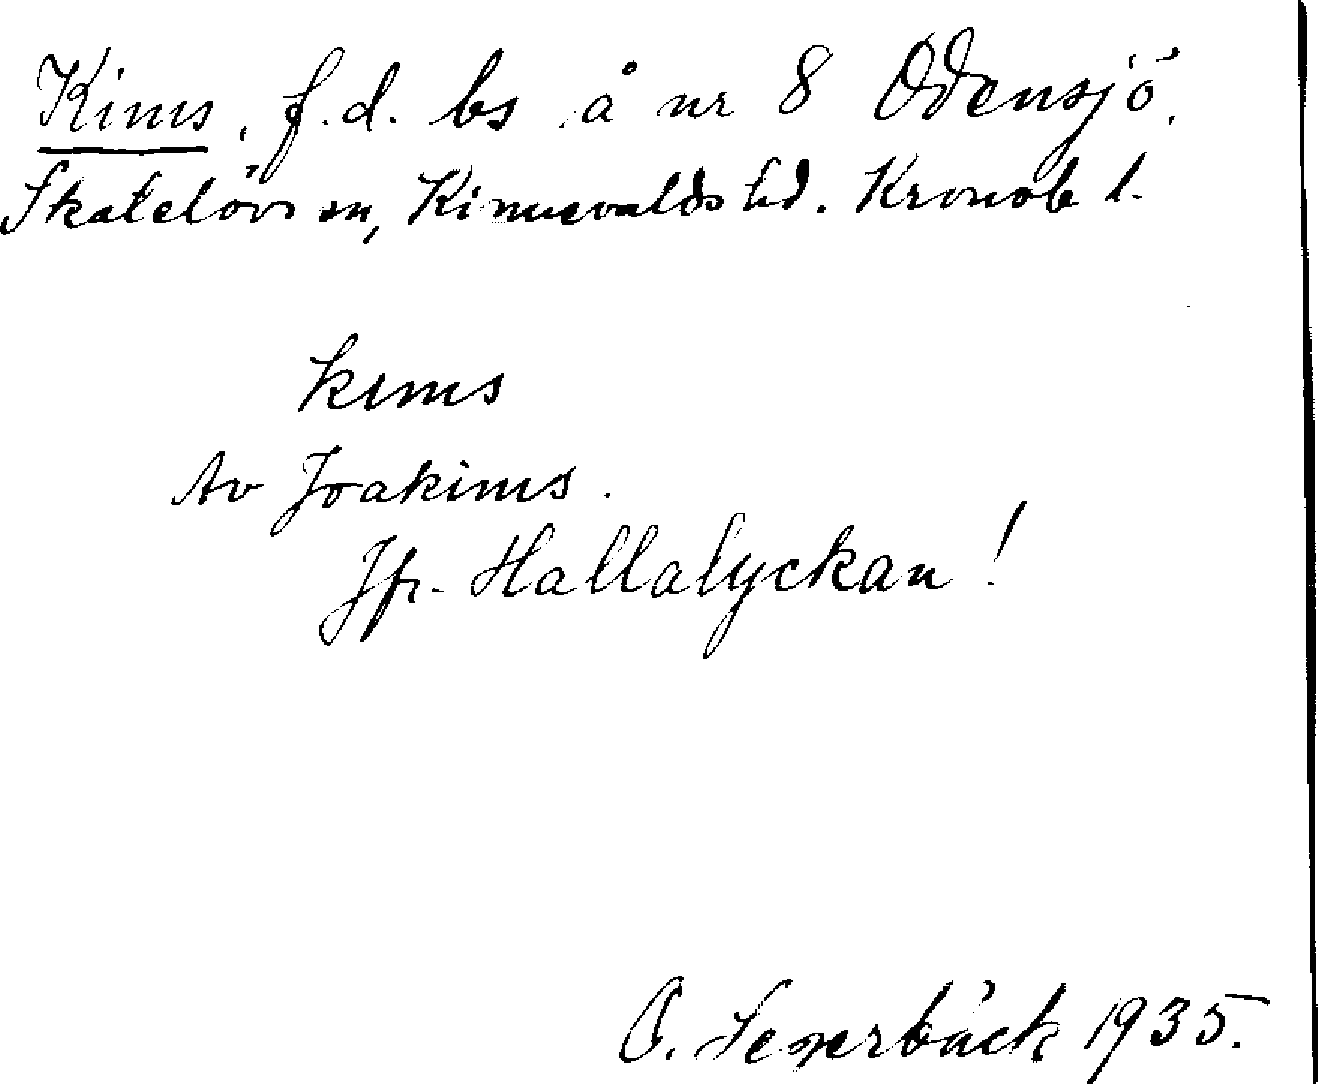 Kims, f.d. bs å nr 8 Odensjö,
Skatelövs sn, Kinnevalds hd. Kronob l.
kıms
Av Joakims.
Jfr. Hallalyckan!
O. Sexerbäck 1935.